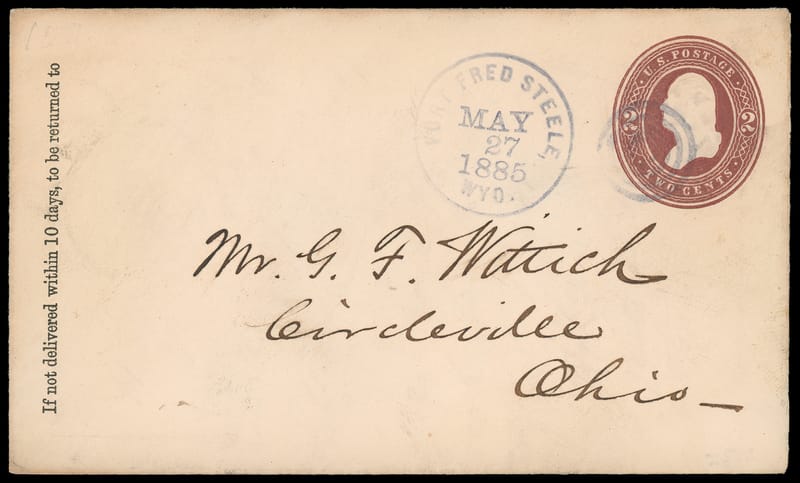 If not delivered within 10 days, to be returned to
FORT FRED STEELE,
MAY
27
1885
WYO.
U.S. POSTAGE
2 2
TWO CENTS
Mr. G. F. Wittich
Circleville
Ohio